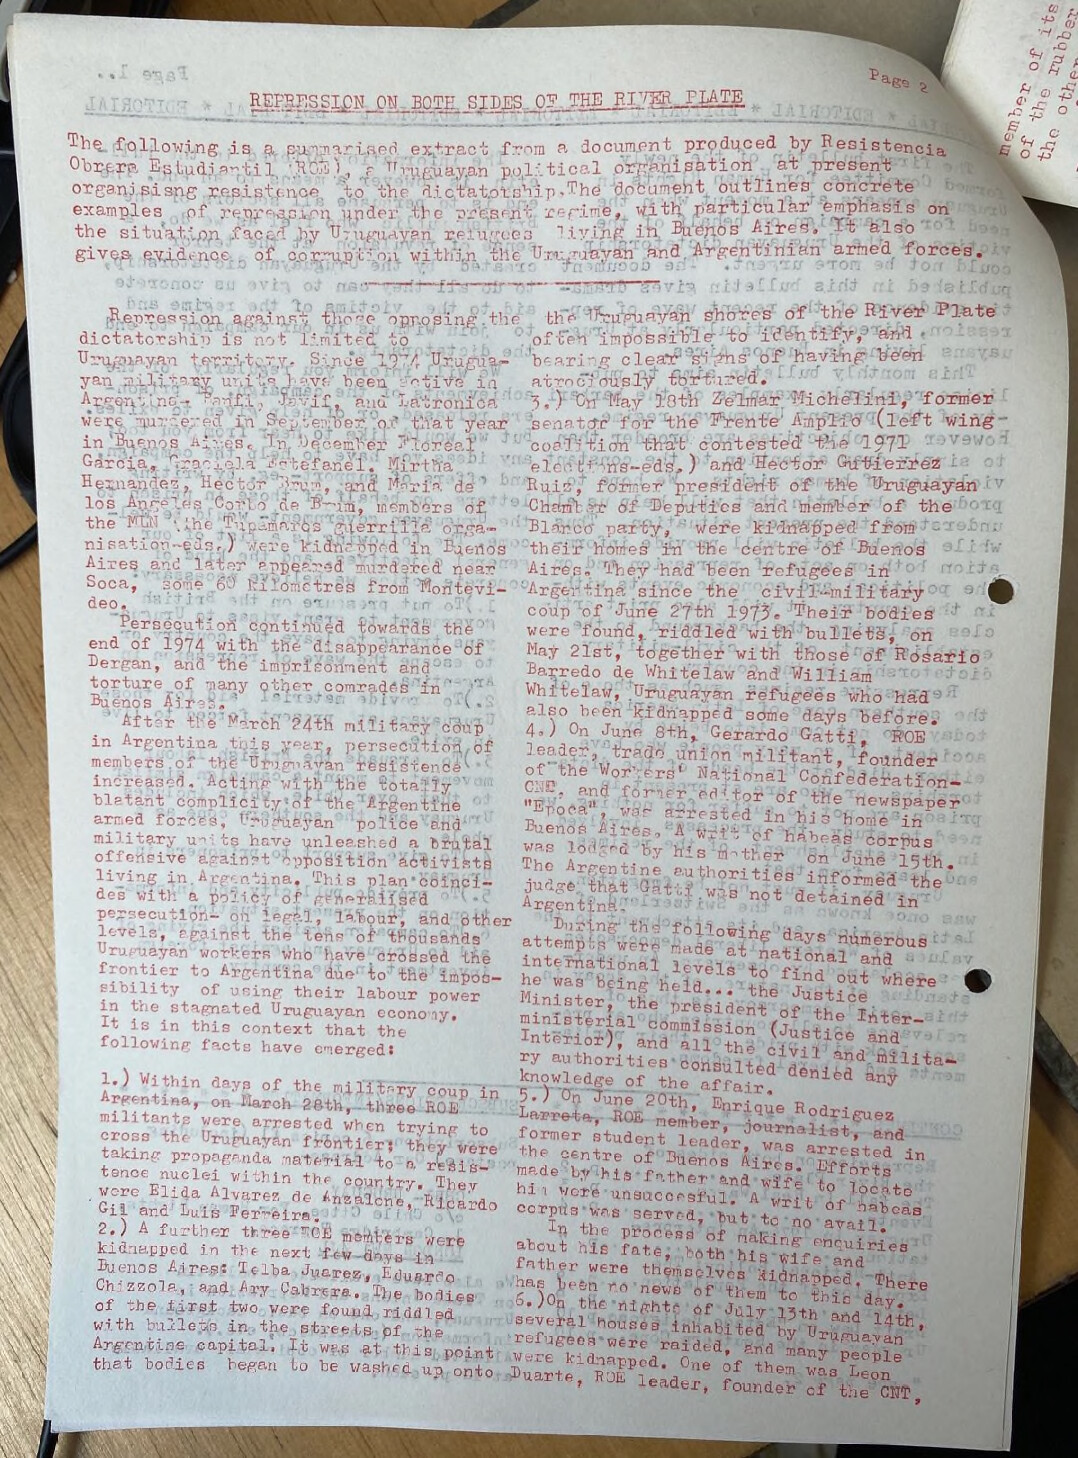 Page 2
REPRESSION ON BOTH SIDES OF THE RIVER PLATE
The following is a summarised extract from a document produced by Resistencia
Obrera Estudiantil (ROE), a Uruguayan political organisation at present
organisisng resistence to the dictatorship.The document outlines concrete
examples of repression under the present regime, with particular emphasis on
the situation faced by Uruguayan refugees living in Buenos Aires. It also
gives evidence of corruption within the Uruguayan and Argentinian armed forces.
Repression against those opposing the
dictatorship is not limited to
Uruguayan territory. Since 1974 Urugua-
yan military units have been active in
Argentina- Banfi, Javif, and Latronica
were murdered in September of that year
in Buenos Aires. In December Floreal
Garcia, Graciela Estefanel. Mirtha
Hernandez, Hector Brun, and Maria de
los Angeles Corbo de Brum, members of
the MLN (the Tupamaros guerrilla orga-
nisation-eds.) were kidnapped in Buenos
Aires and later appeared murdered near
Soca, some 60 kilometres from Montevi-
deo.
Persecution continued towards the
end of 1974 with the disappearance of
Dergan, and the imprisonment and
torture of many other comrades in
Buenos Aires.
After the March 24th military coup
in Argentina this year, persecution of
members of the Uruguayan resistence
increased. Acting with the totally
blatant complicity of the Argentine
armed forces, Uruguayan police and
military units have unleashed a brutal
offensive against opposition activists
living in Argentina. This plan coinci-
des with a policy of generalised
persecution- on legal, labour, and other
levels, against the tens of thousands
Uruguayan workers who have crossed the
frontier to Argentina due to the impos-
sibility of using their labour power
in the stagnated Uruguayan economy.
It is in this context that the
following facts have emerged:
1.) Within days of the military coup in
Argentina, on March 28th, three ROE
militants were arrested when trying to
cross the Uruguayan frontier; they were
taking propaganda material to a resis-
tence nuclei within the country. They
were Elida Alvarez de Anzalone, Ricardo
Gil and Luis Ferreira.
2.) A further three ROE members were
kidnapped in the next few days in
Buenos Aires: Telba Juarez, Eduardo
Chizzola, and Ary Cabrera. The bodies
of the first two were found riddled
with bullets in the streets of the
Argentine capital. It was at this point
that bodies began to be washed up onto
the Uruguayan shores of the River Plate
often impossible to identify, and
bearing clear signs of having been
atrociously tortured.
3.) On May 18th Zelmar Michelini, former
senator for the Frente Amplio (left wing
coalition that contested the 1971
elections-eds.) and Hector Gutierrez
Ruiz, former president of the Uruguayan
Chamber of Deputies and member of the
Blanco party, were kidnapped from
their homes in the centre of Buenos
Aires. They had been refugees in
Argentina since the civil-military
coup of June 27th 1973. Their bodies
were found, riddled with bullets, on
May 21st, together with those of Rosario
Barredo de Whitelaw and William
Whitelaw, Uruguayan refugees who had
also been kidnapped some days before.
4.) On June 8th, Gerardo Gatti, ROE
leader, trade union militant, founder
of the Workers' National Confederation-
CNT, and former editor of the newspaper
"Epoca", was arrested in his home in
Buenos Aires. A writ of habeas corpus
was lodged by his mother on June 15th.
The Argentine authorities informed the
judge that Gatti was not detained in
Argentina.
During the following days numerous
attempts were made at national and
international levels to find out where
he was being held... the Justice
Minister, the president of the Inter-
ministerial commission (Justice and
Interior), and all the civil and milita-
ry authorities consulted denied any
knowledge of the affair.
5.) On June 20th, Enrique Rodriguez
Larreta, ROE member, journalist, and
former student leader, was arrested in
the centre of Buenos Aires. Efforts
made by his father and wife to locate
him were unsuccesful. A writ of habeas
corpus was served, but to no avail.
In the process of making enquiries
about his fate, both his wife and
father were themselves kidnapped. There
has been no news of them to this day.
6.)On the nights of July 13th and 14th,
several houses inhabited by Uruguayan
refugees were raided, and many people
were kidnapped. One of them was Leon
Duarte, ROE leader, founder of the CNT,
member of its
of the rubber
the other